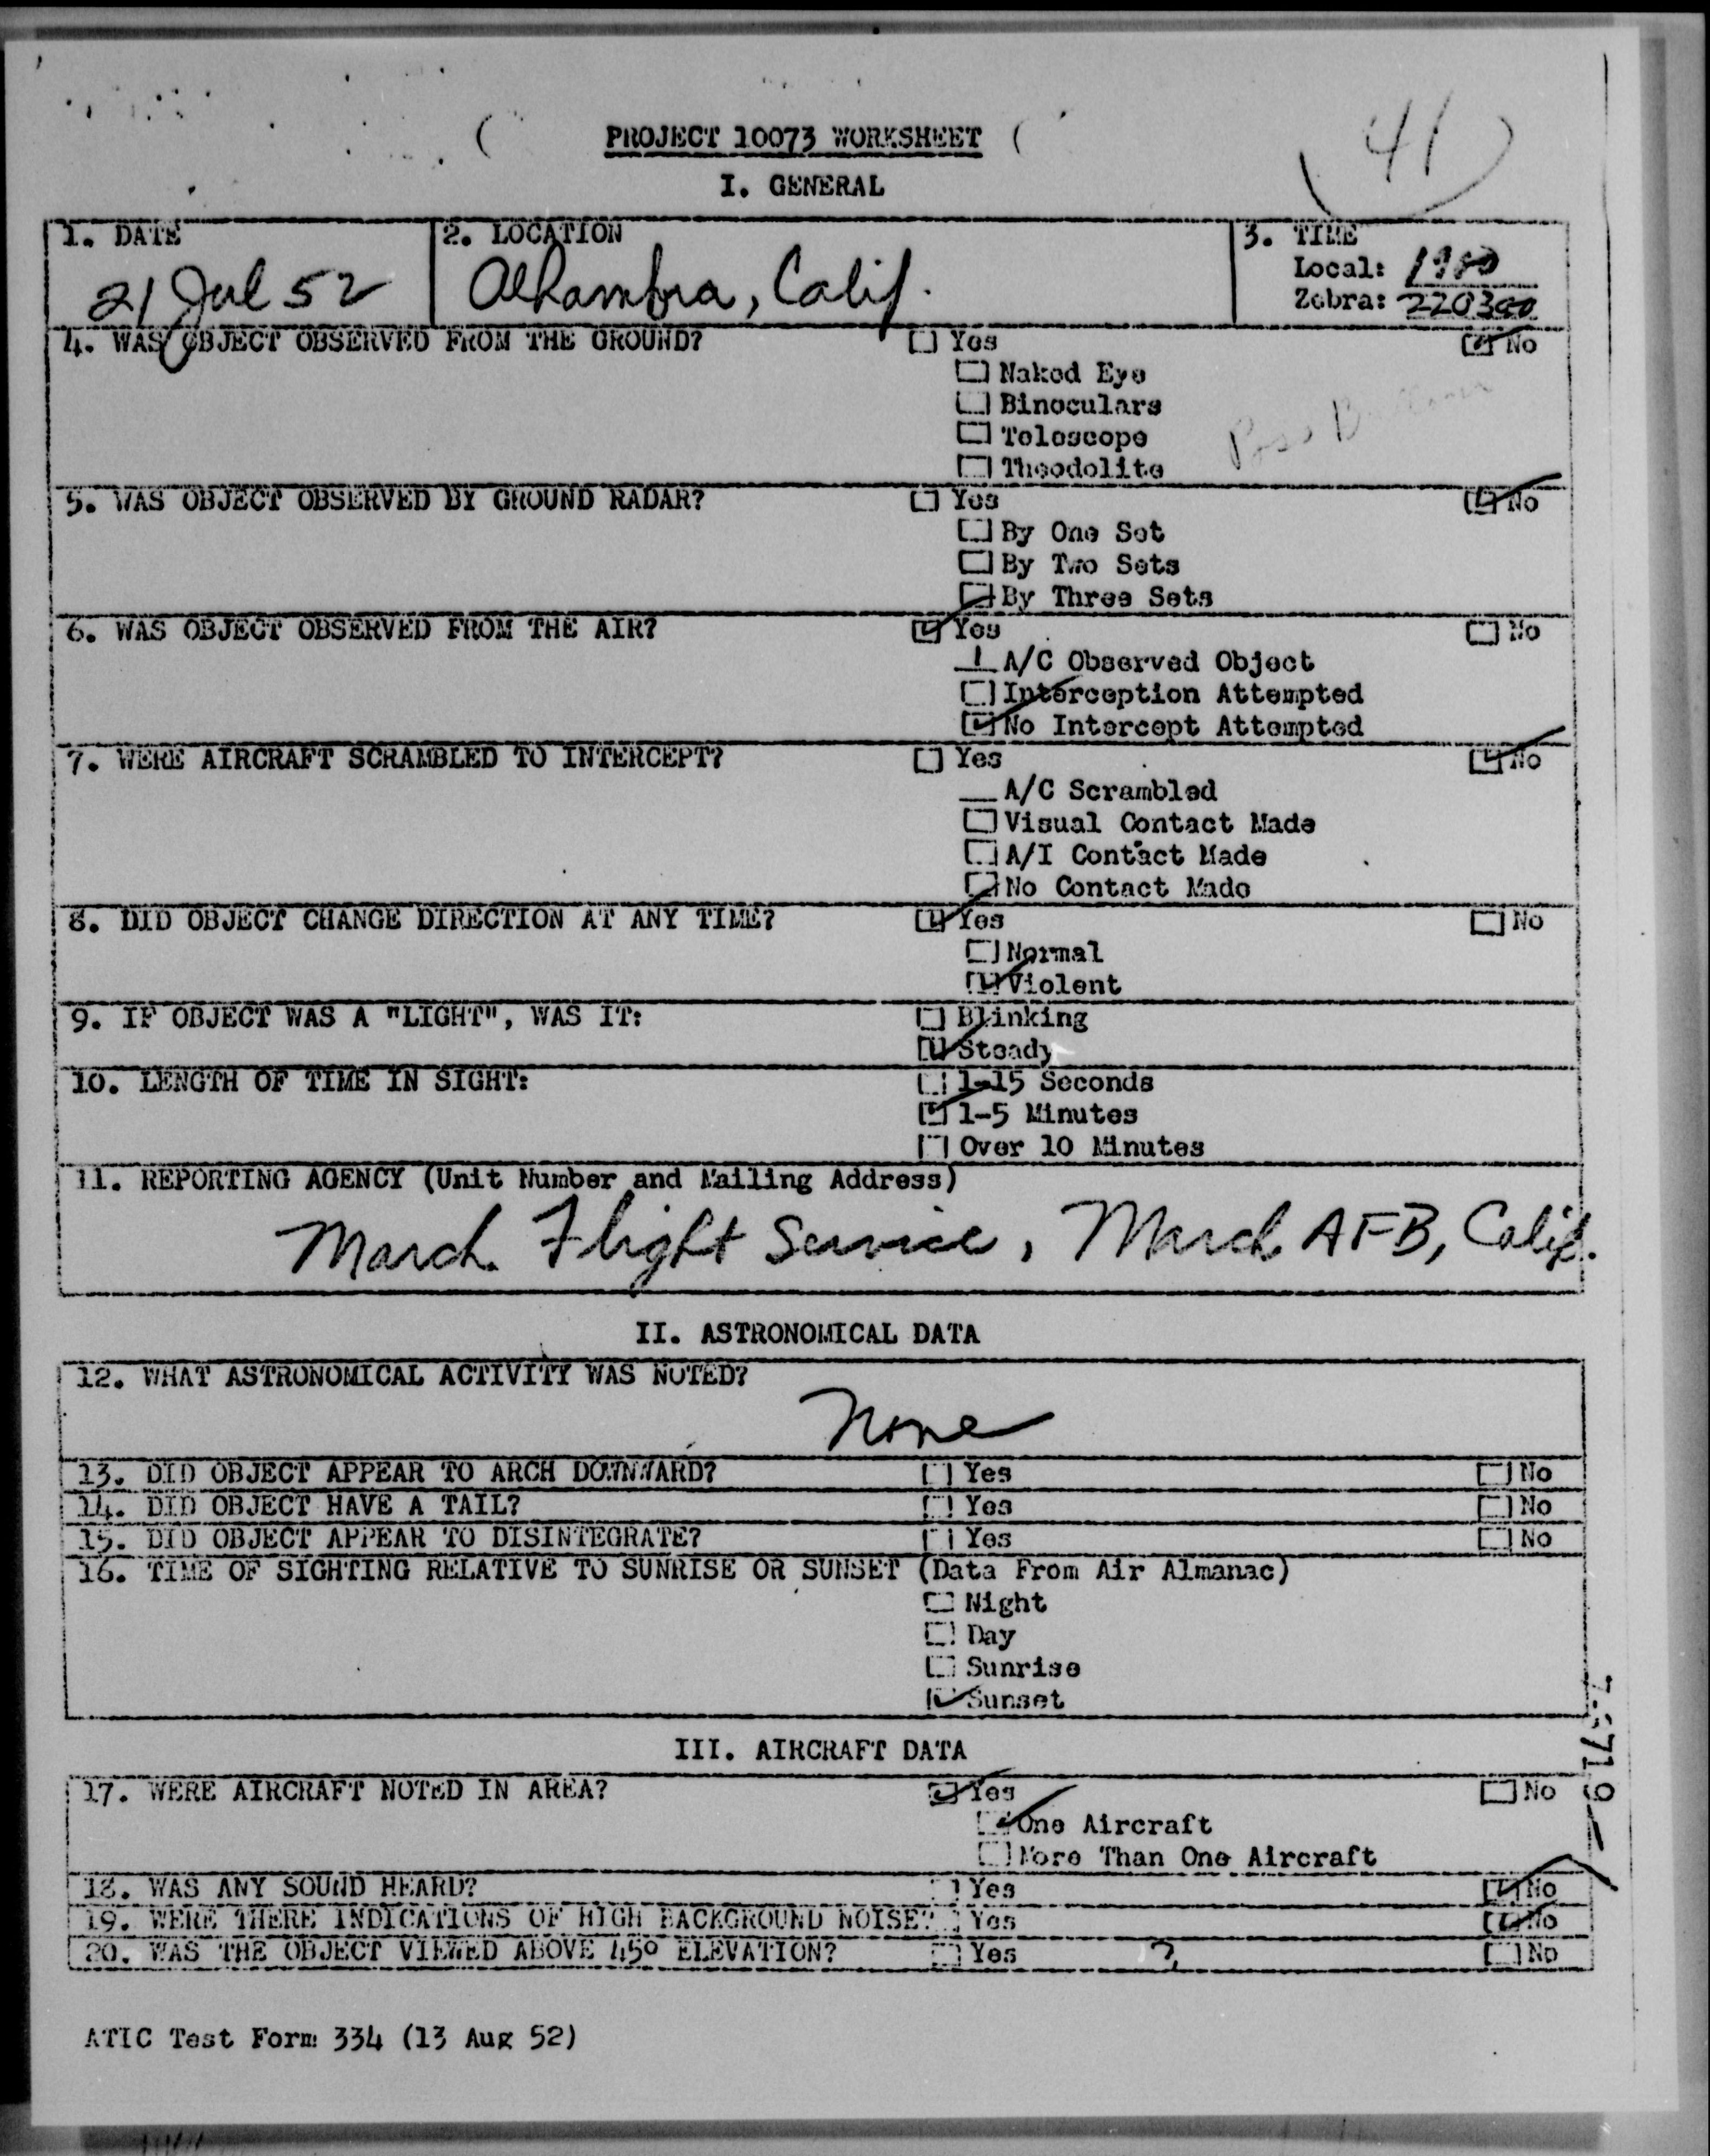 41
PROJECT 10073 WORKSHEET
I. GENERAL
1. DATE 2. LOCATION 3. TIME
21 Jul 52 Alhambra, Calif. Local: 1900
Zebra: 220300
4. WAS OBJECT OBSERVED FROM THE GROUND? Yes No
Naked Eye
Binoculars
Telescope Poss Balloon
Theodolite
5. WAS OBJECT OBSERVED BY GROUND RADAR? Yes No
By One Set
By Two Sets
By Three Sets
6. WAS OBJECT OBSERVED FROM THE AIR? Yes No
1 A/C Observed Object
Interception Attempted
No Intercept Attempted
7. WERE AIRCRAFT SCRAMBLED TO INTERCEPT? Yes No
A/C Scrambled
Visual Contact Made
A/I Contact Made
No Contact Made
8. DID OBJECT CHANGE DIRECTION AT ANY TIME? Yes No
Normal
Violent
9. IF OBJECT WAS A "LIGHT", WAS IT: Blinking
Steady
10. LENGTH OF TIME IN SIGHT: 1-15 Seconds
1-5 Minutes
Over 10 Minutes
11. REPORTING AGENCY (Unit Number and Mailing Address)
March Flight Service, March AFB, Calif.
II. ASTRONOMICAL DATA
12. WHAT ASTRONOMICAL ACTIVITY WAS NOTED?
None
13. DID OBJECT APPEAR TO ARCH DOWNWARD? Yes No
14. DID OBJECT HAVE A TAIL? Yes No
15. DID OBJECT APPEAR TO DISINTEGRATE? Yes No
16. TIME OF SIGHTING RELATIVE TO SUNRISE OR SUNSET (Data From Air Almanac)
Night
Day
Sunrise
Sunset
III. AIRCRAFT DATA
17. WERE AIRCRAFT NOTED IN AREA? Yes No
One Aircraft
More Than One Aircraft
18. WAS ANY SOUND HEARD? Yes No
19. WERE THERE INDICATIONS OF HIGH BACKGROUND NOISE? Yes No
20. WAS THE OBJECT VIEWED ABOVE 45° ELEVATION? Yes ? No
ATIC Test Form 334 (13 Aug 52)